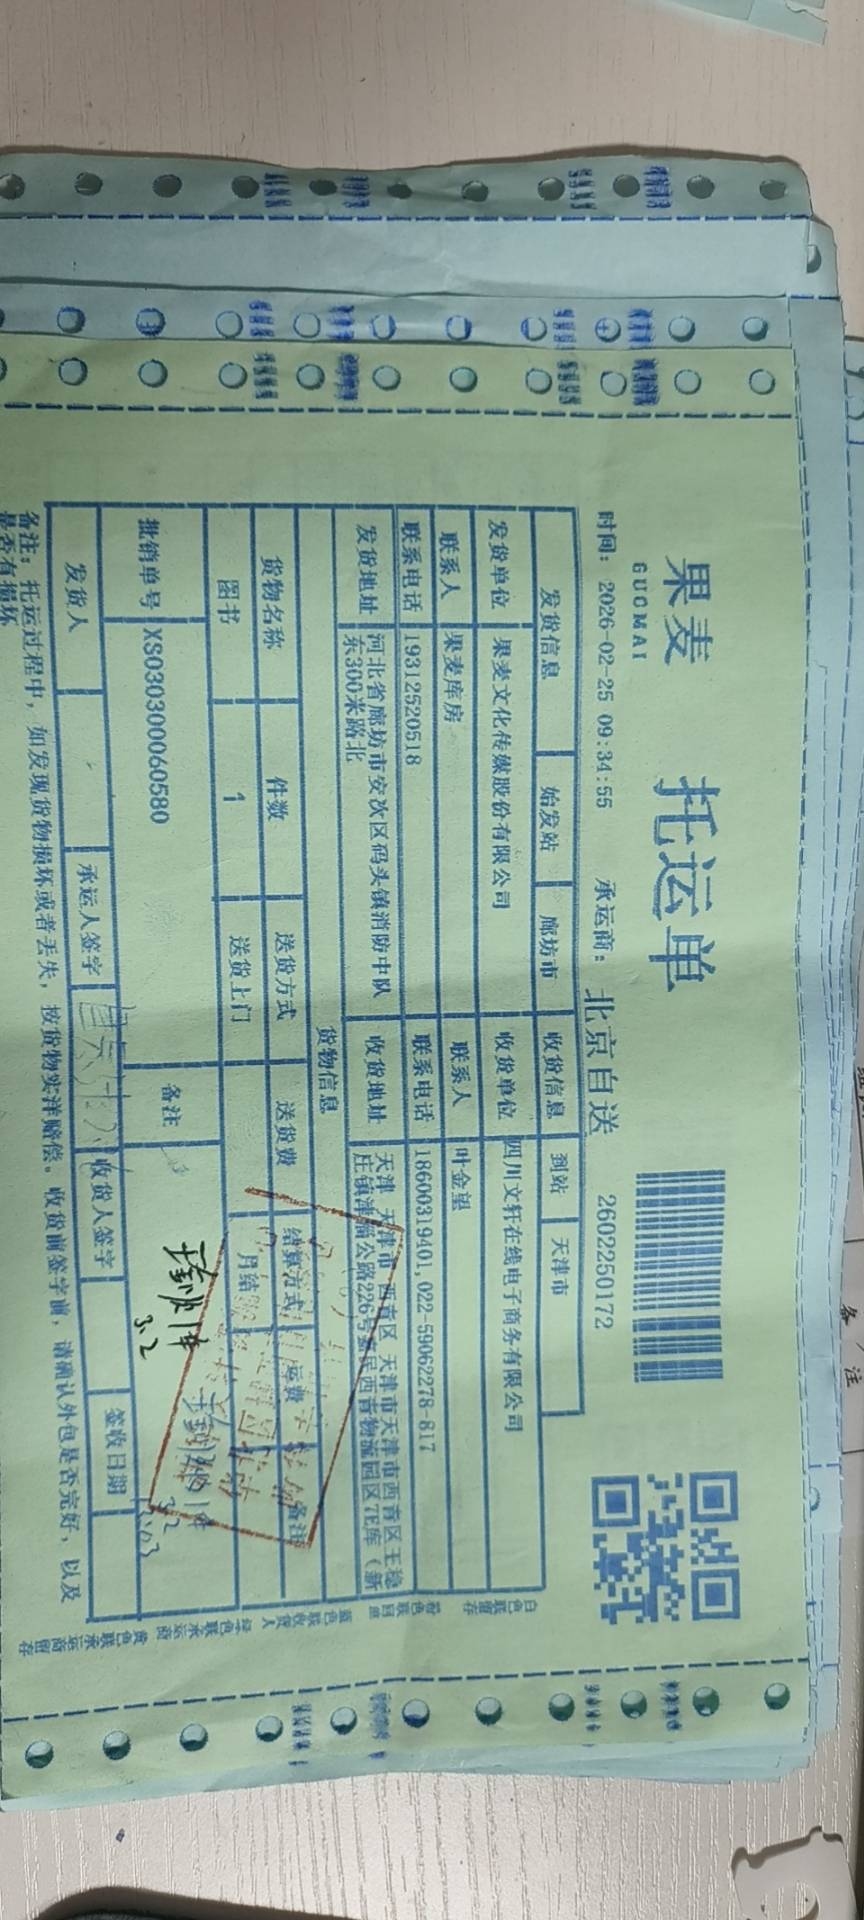 果麦
GUOMAI
托运单
2602250172
时间: 2026-02-25 09:34:55 承运商: 北京自送
发货信息 始发站 廊坊市 收货信息 到站 天津市
发货单位 果麦文化传媒股份有限公司 收货单位 四川文轩在线电子商务有限公司
联系人 果麦库房 联系人 叶金望
联系电话 19312520518 联系电话 18600319401,022-59062278-817
发货地址 河北省廊坊市安次区码头镇消防中队
东300米路北
收货地址 天津 天津市 西青区 天津市天津市西青区王稳
庄镇津淄公路226号嘉民西青物流园区7E库（新
货物信息
货物名称 件数 送货方式 送货费 结算方式 运费 备注
图书 1 送货上门 月结
批销单号 XS030300060580 备注
3.2
3.2
3.03
发货人 承运人签字 收货人签字 签收日期
备注: 托运过程中, 如发现货物损坏或者丢失, 按货物实洋赔偿。收货前签字前, 请确认外包是否完好, 以及
是否有损坏
白色联留存 粉色联回单 蓝色联收货人 绿色联承运商 黄色联承运商留存
备注